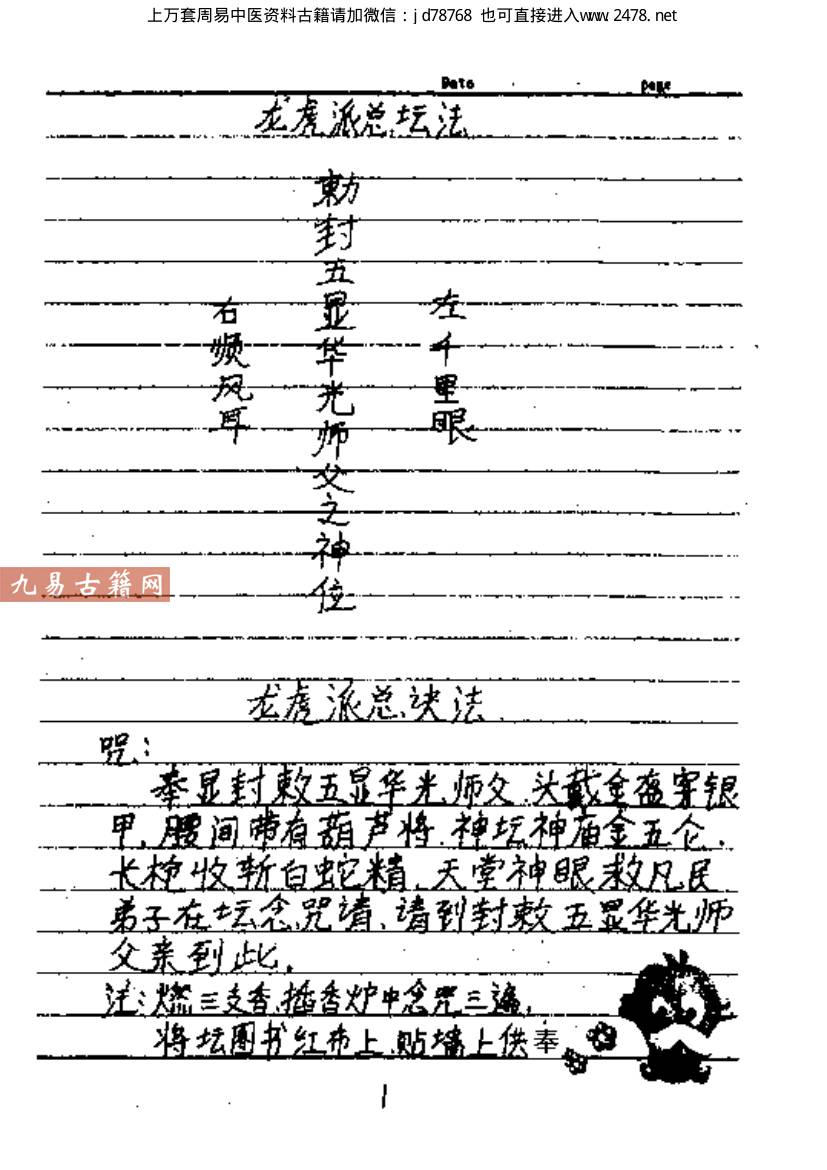 上万套周易中医资料古籍请加微信：jd78768 也可直接进入www.2478.net
Date page
龙虎派总坛法
左千里眼
勅封五显华光师父之神位
右顺风耳
九易古籍网
龙虎派总诀法
咒：
奉显封敕五显华光师父.头戴金盔穿银
甲,腰间带有葫芦将.神坛神庙金五仑.
长枪收斩白蛇精、天堂神眼救凡民
弟子在坛念咒请、请到封敕五显华光师
父亲到此.
注:燃三支香.插香炉中念咒三遍,
将坛图书红布上.贴墙上供奉
1